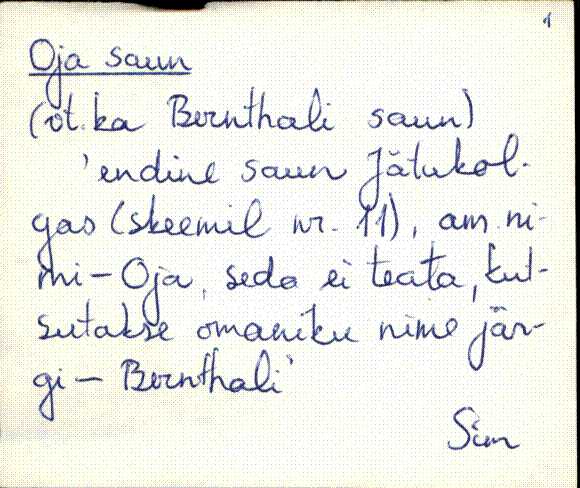 1
Oja saun
(vt. ka Bernthali saun)
'endine saun Jätukol-
gas (skeemil nr. 11), am. ni-
mi – Oja, seda ei teata, kut-
sutakse omaniku nime jär-
gi – Bernthali'
Sim